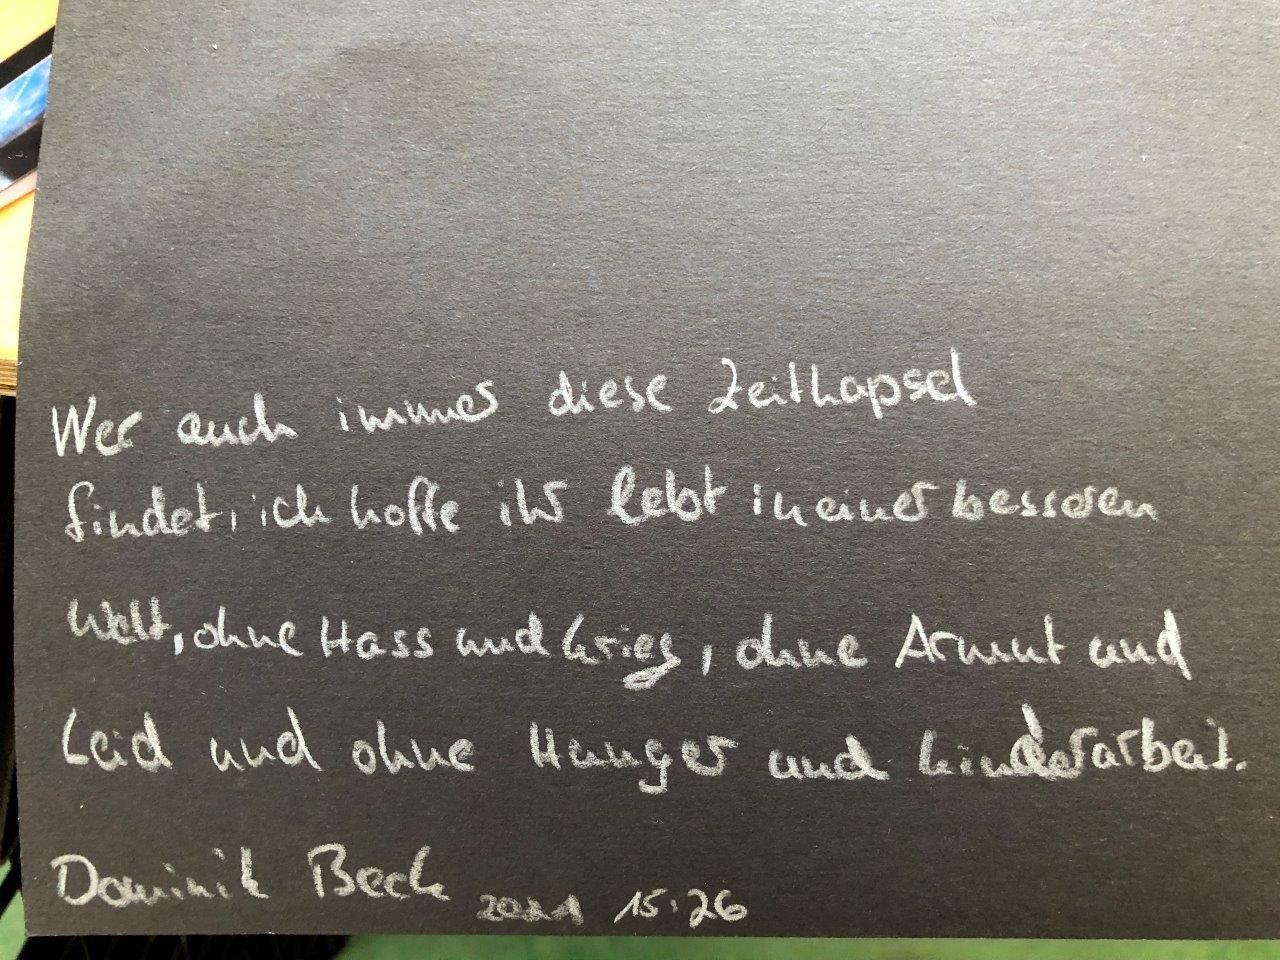 Wer auch immer diese Zeitkapsel
findet, ich hoffe ihr lebt in einer besseren
Welt, ohne Hass und Krieg, ohne Armut und
Leid und ohne Hunger und Kinderarbeit.
Dominik Beck 2021 15:26